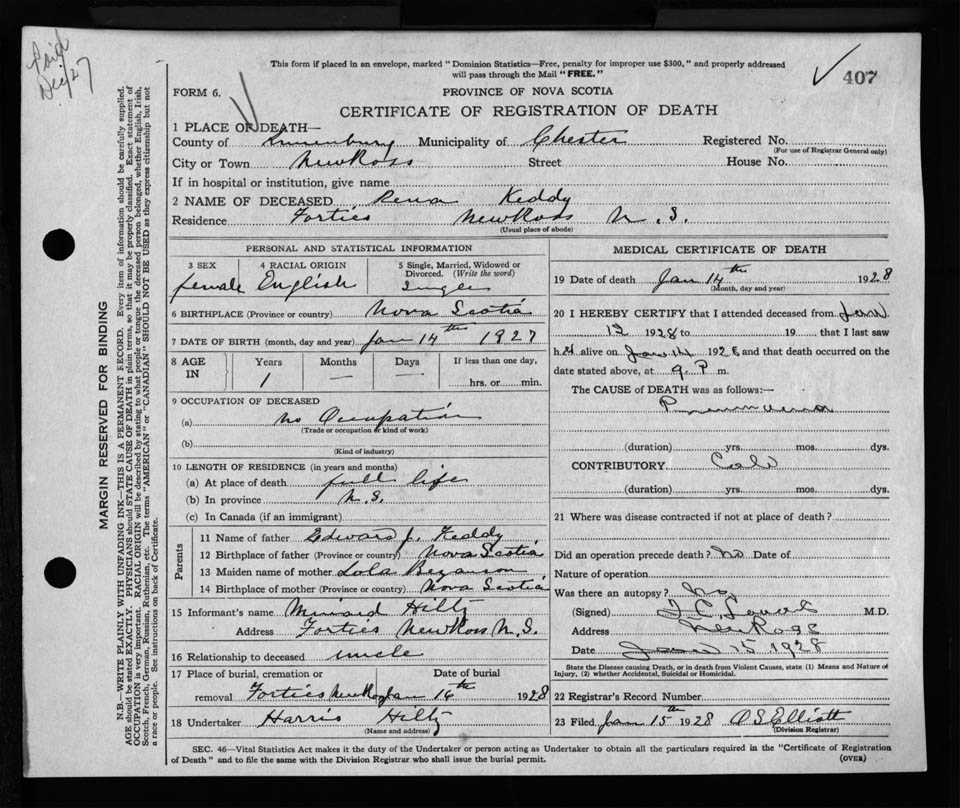 Paid
Dec/27
This form if placed in an envelope, marked "Dominion Statistics—Free, penalty for improper use $300," and properly addressed
will pass through the Mail "FREE."
407
FORM 6.
PROVINCE OF NOVA SCOTIA
CERTIFICATE OF REGISTRATION OF DEATH
1 PLACE OF DEATH—
County of Lunenburg Municipality of Chester Registered No.
(For use of Registrar General only)
City or Town New Ross Street House No.
If in hospital or institution, give name
2 NAME OF DECEASED Rena Keddy
Residence Forties New Ross N. S.
(Usual place of abode)
PERSONAL AND STATISTICAL INFORMATION
3 SEX 4 RACIAL ORIGIN 5 Single, Married, Widowed or
Divorced. (Write the word)
female English Single
6 BIRTHPLACE (Province or country) Nova Scotia
7 DATE OF BIRTH (month, day and year) Jan 14th 1927
8 AGE IN Years Months Days If less than one day,
1 — — hrs. or min.
9 OCCUPATION OF DECEASED
(a) no Occupation
(Trade or occupation or kind of work)
(b)
(Kind of industry)
10 LENGTH OF RESIDENCE (in years and months)
(a) At place of death full life
(b) In province N.S.
(c) In Canada (if an immigrant)
Parents
11 Name of father Edward J. Keddy
12 Birthplace of father (Province or country) Nova Scotia
13 Maiden name of mother Lola Bezanson
14 Birthplace of mother (Province or country) Nova Scotia
15 Informant's name Minard Hiltz
Address Forties New Ross N.S.
16 Relationship to deceased uncle
17 Place of burial, cremation or Date of burial
removal Forties New Ross Jan 16th 1928
18 Undertaker Harris Hiltz
(Name and address)
MEDICAL CERTIFICATE OF DEATH
19 Date of death Jan 14th 1928
(Month, day and year)
20 I HEREBY CERTIFY that I attended deceased from Jan
12 1928 to 19 that I last saw
h er alive on Jan 14 1928 and that death occurred on the
date stated above, at 9 P m.
The CAUSE of DEATH was as follows:—
Pneumonia
(duration) yrs. mos. dys.
CONTRIBUTORY Cold
(duration) yrs. mos. dys.
21 Where was disease contracted if not at place of death?
Did an operation precede death? No Date of
Nature of operation
Was there an autopsy? No
(Signed) M.D.
Address New Ross
Date Jan 15 1928
State the Disease causing Death, or in death from Violent Causes, state (1) Means and Nature of
Injury, (2) whether Accidental, Suicidal or Homicidal.
22 Registrar's Record Number
23 Filed Jan 15th 1928 O S Elliott
(Division Registrar)
SEC. 46—Vital Statistics Act makes it the duty of the Undertaker or person acting as Undertaker to obtain all the particulars required in the "Certificate of Registration
of Death" and to file the same with the Division Registrar who shall issue the burial permit.
(OVER)
MARGIN RESERVED FOR BINDING
N.B.—WRITE PLAINLY WITH UNFADING INK—THIS IS A PERMANENT RECORD. Every item of information should be carefully supplied.
AGE should be stated EXACTLY. PHYSICIANS should STATE CAUSE OF DEATH in plain terms, so that it may be properly classified. Exact statement of
OCCUPATION is very important. RACIAL ORIGIN will be described by stating to what people or tongue the deceased person belonged, whether English, Irish,
Scotch, French, German, Russian, Ruthenian, etc. The terms "AMERICAN" or "CANADIAN" SHOULD NOT BE USED as they express citizenship but not
a race or people. See instructions on back of Certificate.